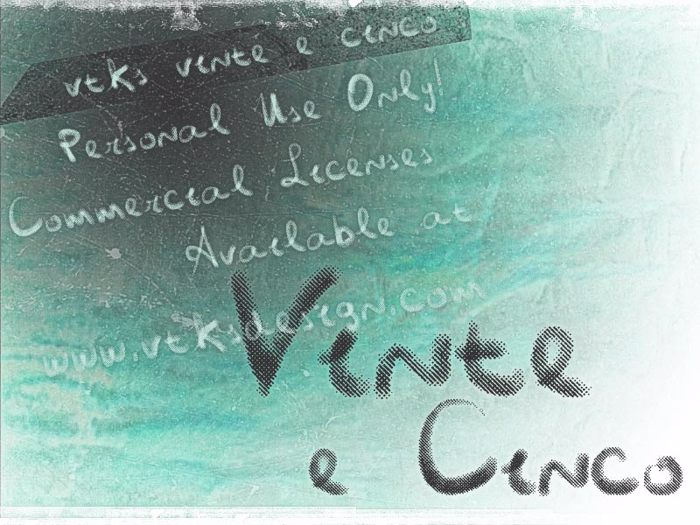 vtks vente e cinco
Personal Use Only!
Commercial Licenses
Available at
www.vtksdesign.com
Vente
e Cinco